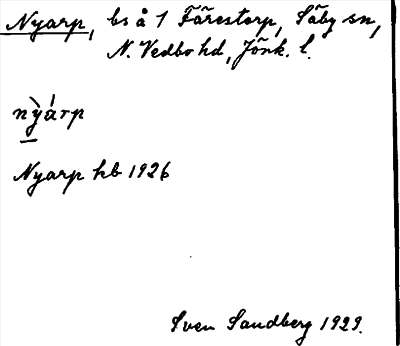 Nyarp, bs å 1 Fårestorp, Säby sn,
N. Vedbo hd, Jönk. l.
nỳárp
Nyarp hb 1926
Sven Sandberg 1929.